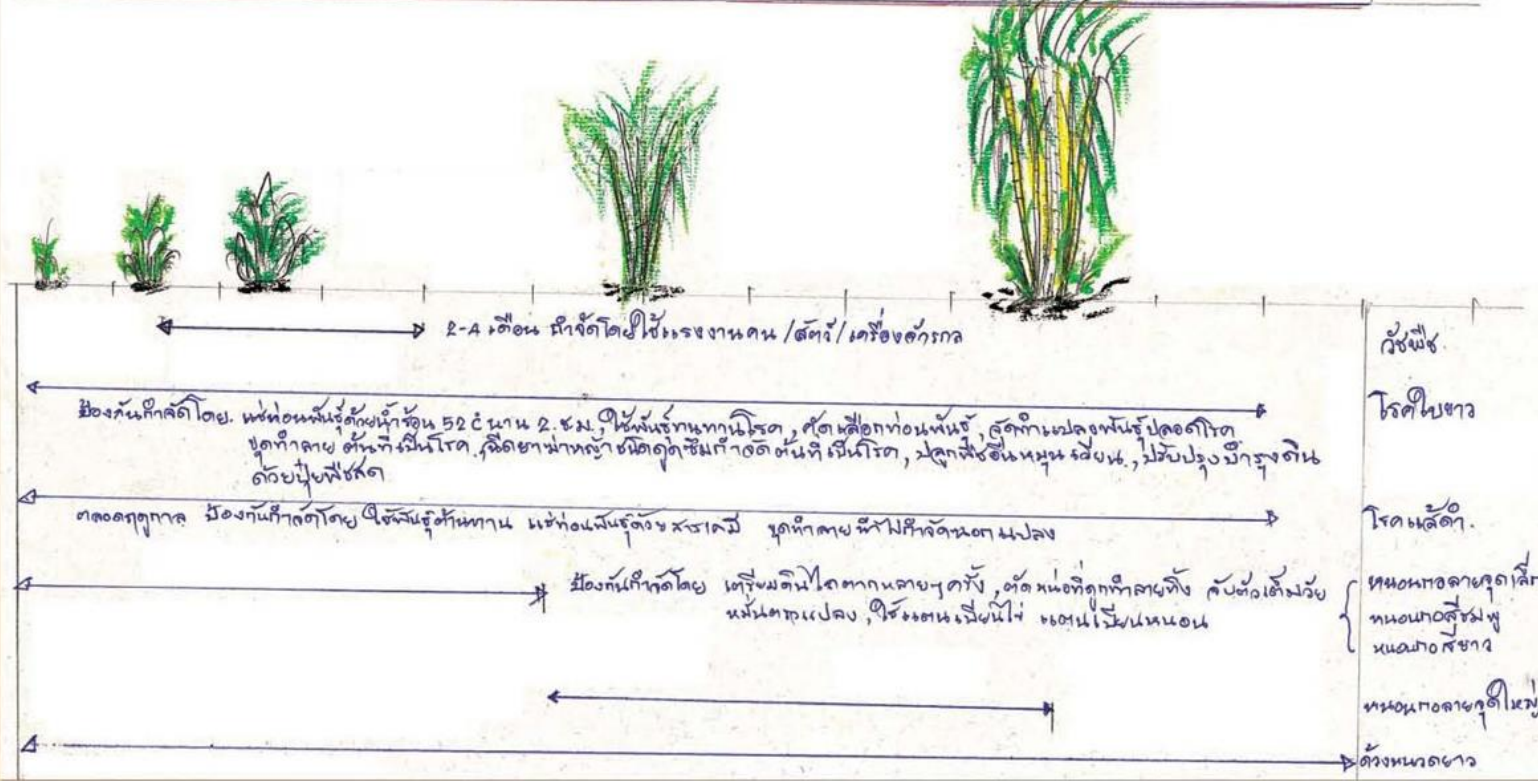 2-4 เดือน กำจัดโดยใช้แรงงานคน / สัตว์ / เครื่องจักรกล
วัชพืช
โรคใบขาว
ป้องกันกำจัดโดย. แช่ท่อนพันธุ์ด้วยน้ำร้อน 52 ํc นาน 2. ช.ม., ใช้พันธุ์ทนทานโรค, คัดเลือกท่อนพันธุ์, จัดทำแปลงพันธุ์ปลอดโรค
ขุดทำลาย ต้นที่เป็นโรค, ฉีดยาฆ่าหญ้าชนิดดูดซึมกำจัดต้นที่เป็นโรค, ปลูกพืชอื่นหมุนเวียน., ปรับปรุงบำรุงดิน
ด้วยปุ๋ยพืชสด
ตลอดฤดูกาล ป้องกันกำจัดโดย ใช้พันธุ์ต้านทาน แช่ท่อนพันธุ์ด้วยสารเคมี ขุดทำลาย กำจัดนอกแปลง
โรคแส้ดำ.
ป้องกันกำจัดโดย เตรียมดินไถตากหลายๆครั้ง, ตัดหน่อที่ถูกทำลายทิ้ง จับตัวเต็มวัย
หมั่นตรวจแปลง, ใช้แตนเบียนไข่ แตนเบียนหนอน
หนอนกอลายจุดเล็ก
หนอนกอสีชมพู
หนอนกอสีขาว
หนอนกอลายจุดใหญ่
ด้วงหนวดยาว